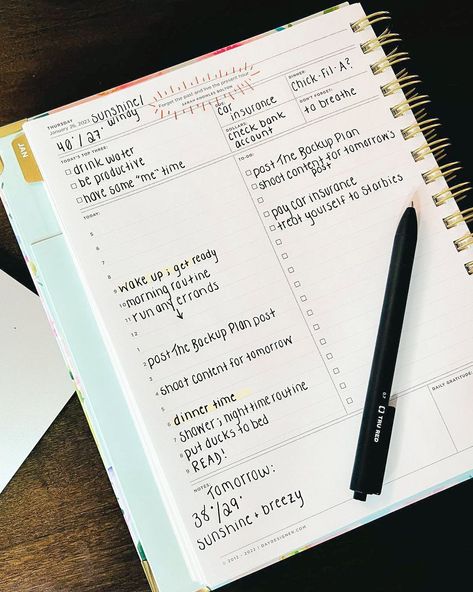 JAN
THURSDAY
January 26, 2023
sunshine/
windy
40°/27°
Forget the past and live the present hour.
SARAH KNOWLES BOLTON
Car
insurance
DOLLARS:
check bank
account
DINNER:
Chick-Fil-A?
DON'T FORGET:
to breathe
TODAY'S TOP THREE:
drink water
be productive
have some "me" time
TO-DO:
post The Backup Plan
shoot content for tomorrow's
post
pay car insurance
treat yourself to Starbies
TODAY:
5
6
7
8
wake up; get ready
9
morning routine
10
run any errands
11
12
1
post The Backup Plan post
2
3
shoot content for tomorrow
4
5
dinner time
6
shower; nighttime routine
7
put ducks to bed
8
READ!
9
DAILY GRATITUDE:
NOTES:
Tomorrow:
38°/29°
sunshine + breezy
© 2012 - 2022 | DAYDESIGNER.COM
TRU RED
0.7